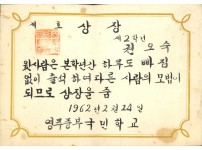 제 호 상장
제2학년
권오숙
윗사람은 본학년간 하루도 빠짐
없이 출석하여 다른 사람의 모범이
되므로 상장을 줌
1962년 2월 24일
영주중부국민학교